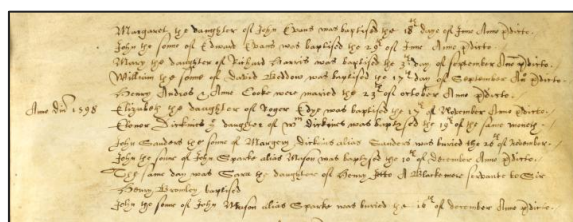 Margaret the daughter of John Evans was baptised the 18th daye of June Anno pdicto
John the sonne of Edward Evans was baptised the 29th of June Anno pdicto
Mary the daughter of Richard Harris was baptised the 3d day of September Anno pdicto
William the sonne of David Beddow was baptised the 17th day of September Ano pdicto
Henry Andros & Ame Cooke were maried the 23th of october Anno pdicto
Anno dni 1598 Elizabeth the daughter of Roger Edge was baptised the 17th of November Anno pdicto
Elenor Dickins ye daughter of wm dickins was baptysed the 19th of the same moneth
John Sanders the sonne of Margery dickins alias Sanders was buried the 26th of november
John the sonne of John Sparke alias Mason was baptised the 10th of december Anno pdicto
The same day was Sara the daughter of Henry A Blackemore servante to Sir
Henry Bromley baptised
John the sonne of John Mason alias Sparke was buried the 16th of december Anno pdicto